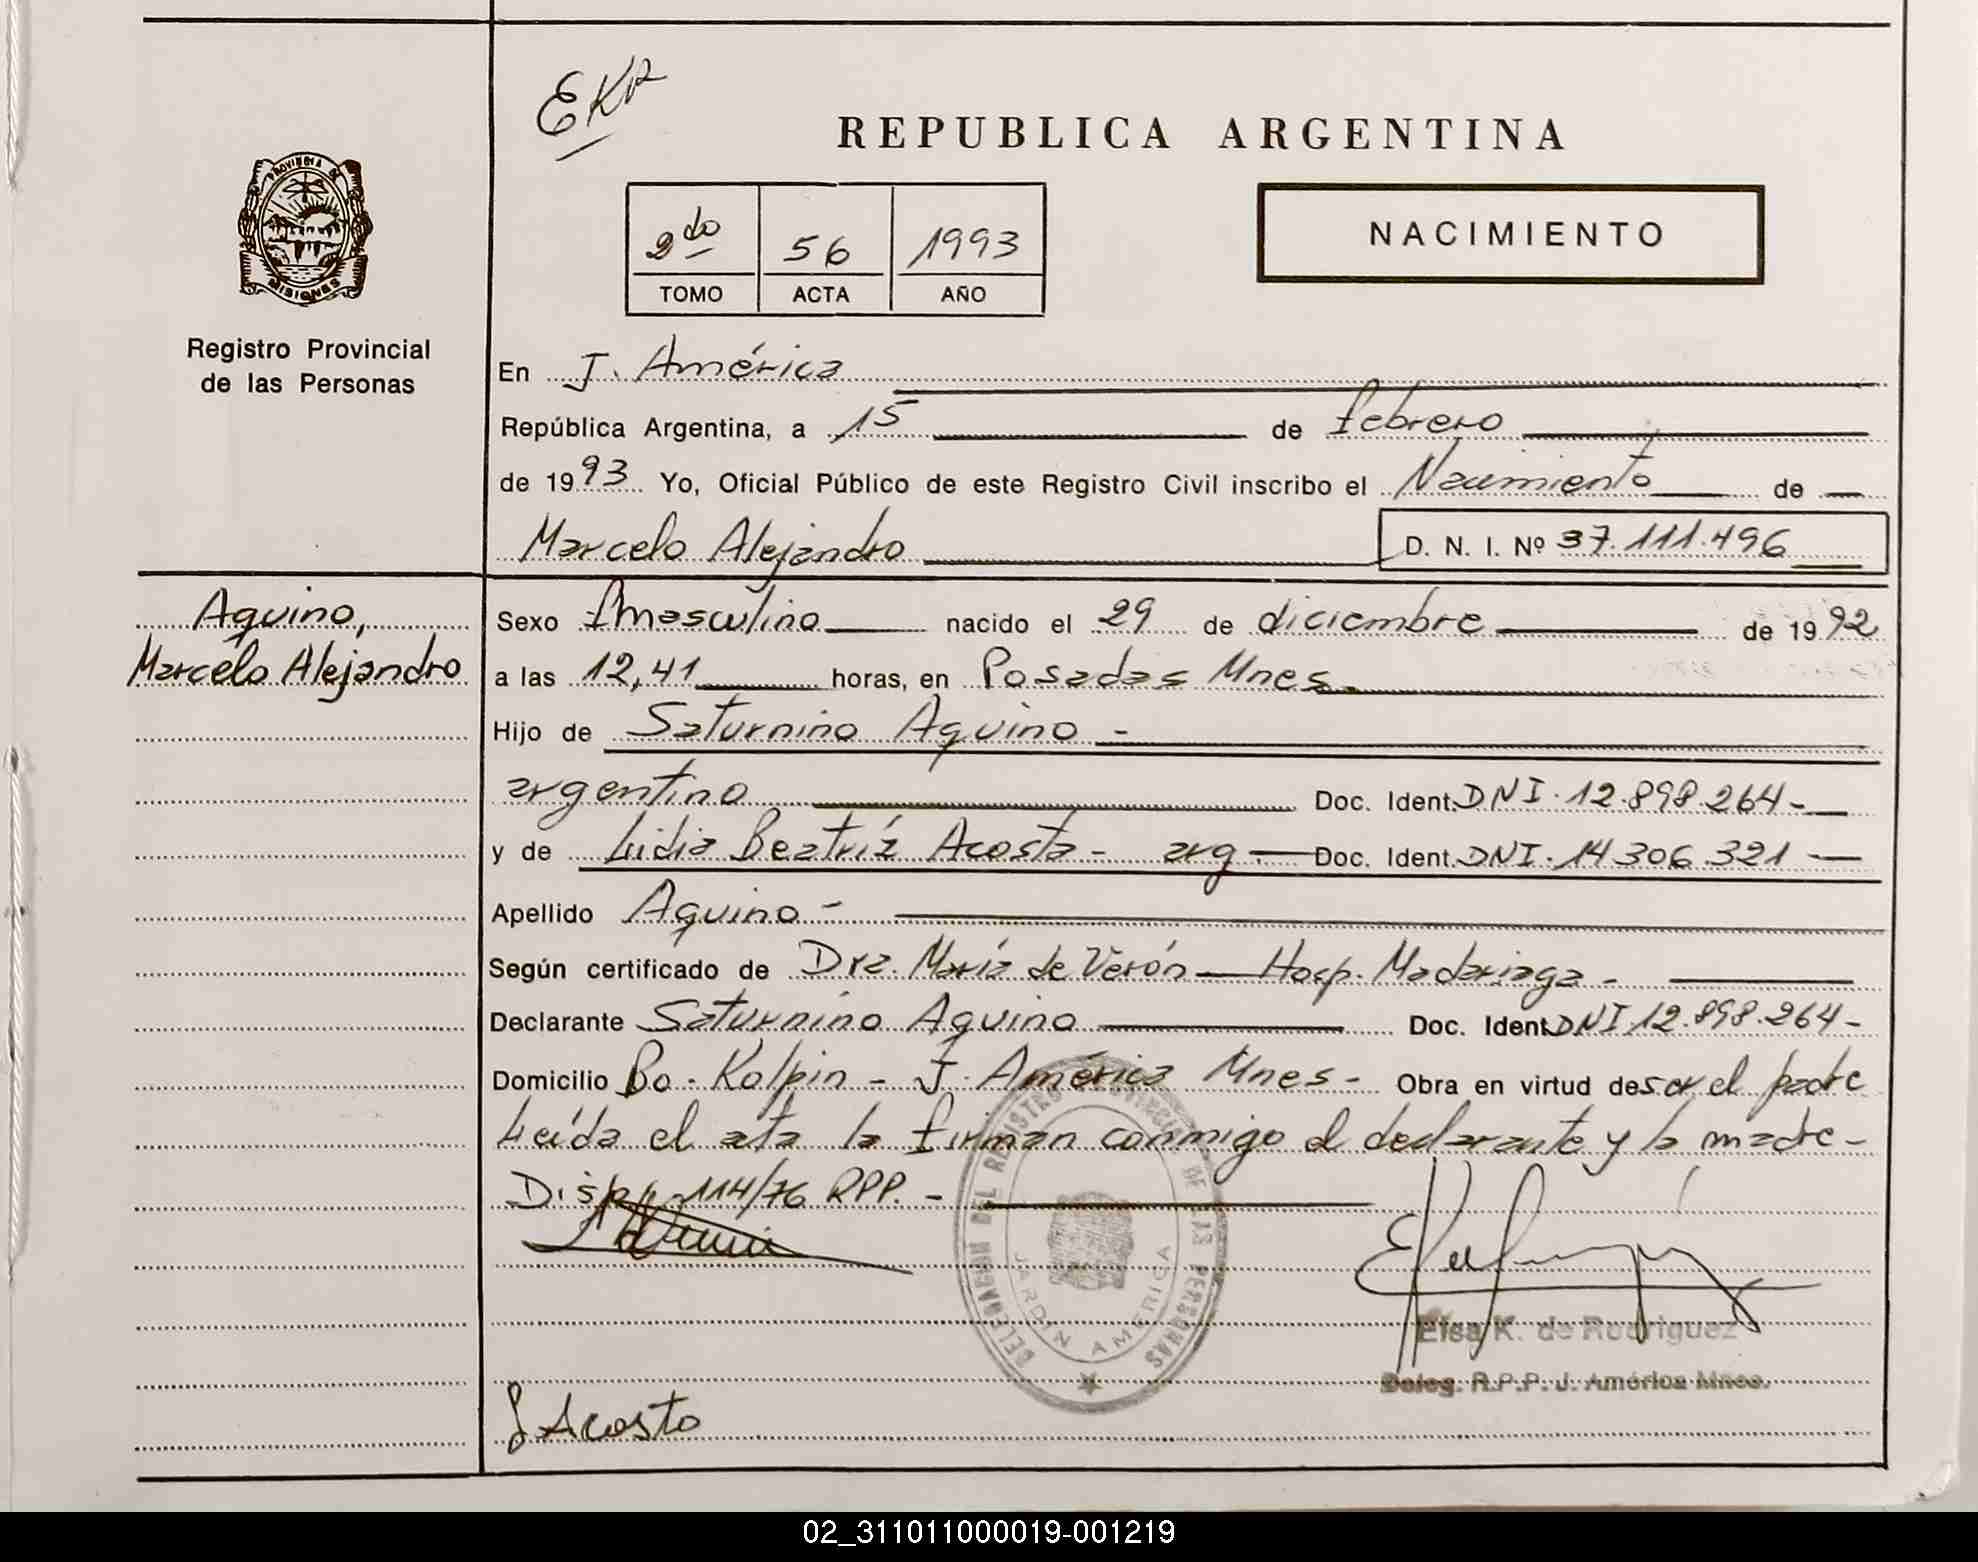 EKR
REPUBLICA ARGENTINA
PROVINCIA DE
MISIONES
2do 56 1993
TOMO ACTA AÑO
NACIMIENTO
Registro Provincial
de las Personas
En J. América
República Argentina, a 15 de febrero
de 1993 Yo, Oficial Público de este Registro Civil inscribo el Nacimiento de
Marcelo Alejandro D. N. I. Nº 37.111.496
Aquino,
Marcelo Alejandro
Sexo masculino nacido el 29 de diciembre de 1992
a las 12,41 horas, en Posadas Mnes.
Hijo de Saturnino Aquino -
argentino Doc. Ident. DNI. 12.898.264-
y de Lidia Beatríz Acosta - arg. Doc. Ident. DNI. 14.306.321
Apellido Aquino -
Según certificado de Dra. María de Verón Hosp. Madariaga -
Declarante Saturnino Aquino Doc. Ident DNI 12.898.264-
Domicilio Bo. Kolpin - J. América Mnes - Obra en virtud de ser el padre
Leída el ata la firman conmigo el declarante y la madre-
Disp. 114/76 RPP. -
DELEGACION DEL REGISTRO PROVINCIAL DE LAS PERSONAS
JARDIN AMERICA
Elsa K. de Rodriguez
Deleg. R.P.P. J. América Mnes.
L Acosta
02_311011000019-001219